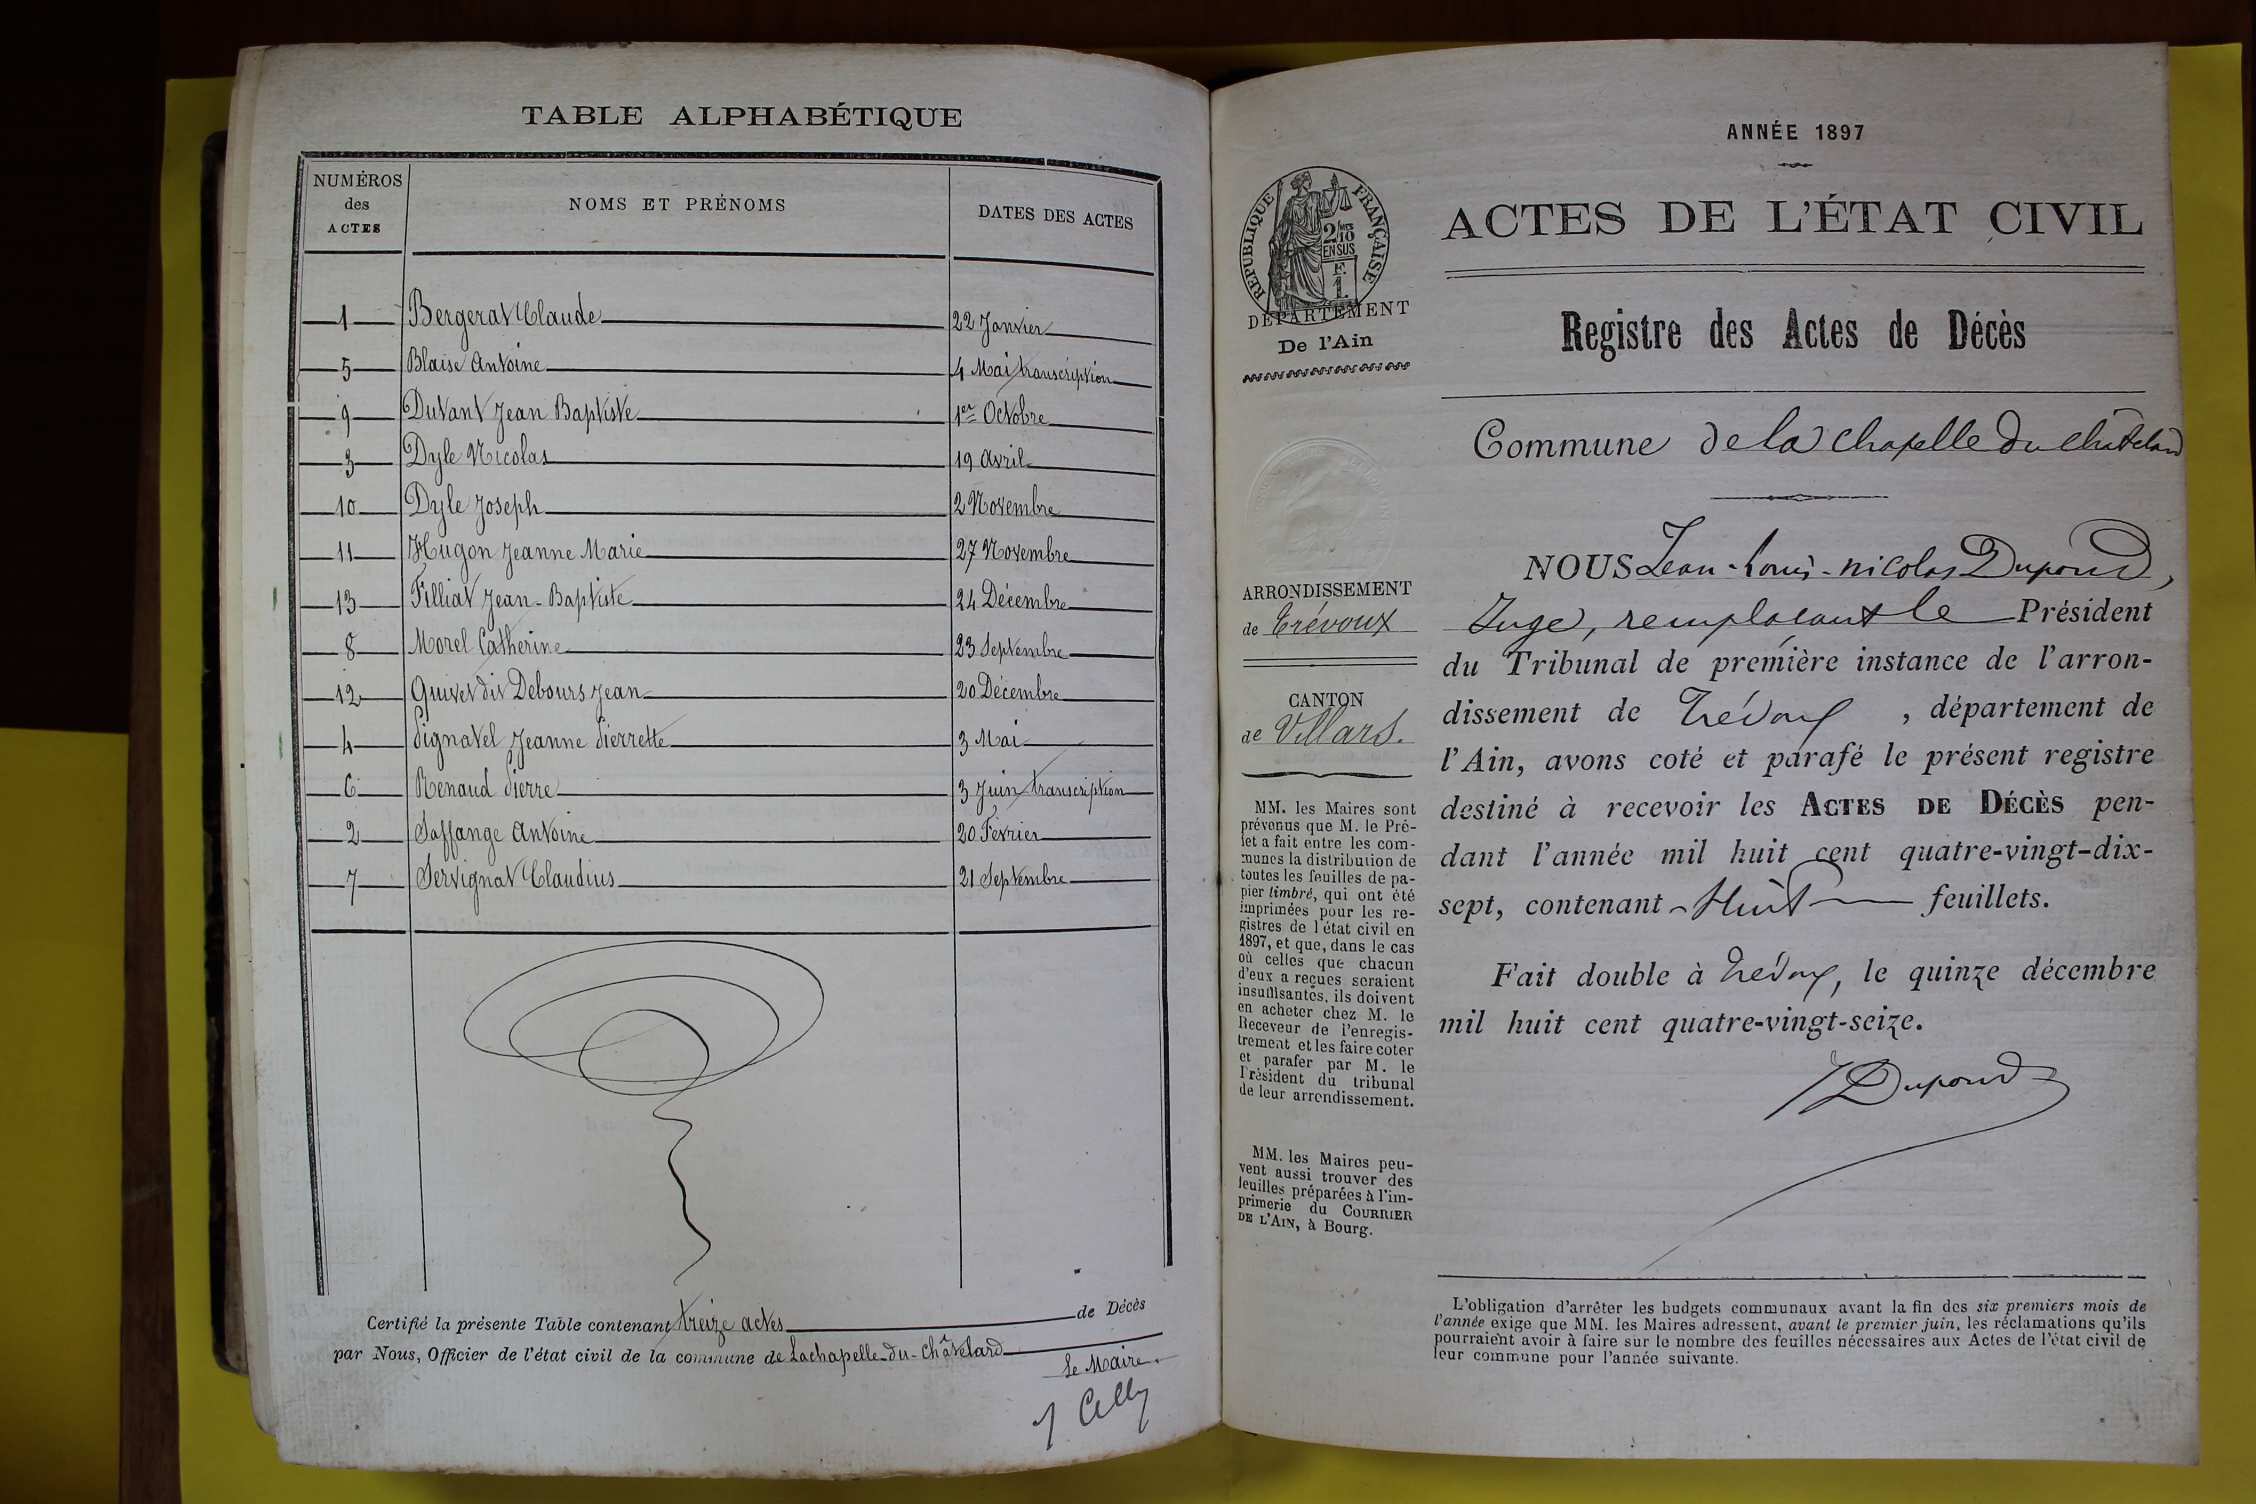 TABLE ALPHABÉTIQUE
NUMÉROS des ACTES NOMS ET PRÉNOMS DATES DES ACTES
1 Bergerat Claude 22 Janvier
5 Blaise Antoine 4 Mai transcription
9 Dutant Jean Baptiste 1er Octobre
3 Dyle Nicolas 19 Avril
10 Dyle Joseph 2 Novembre
11 Hugon Jeanne Marie 27 Novembre
13 Filliat Jean-Baptiste 24 Décembre
8 Morel Catherine 23 Septembre
12 Quivet dit Debours Jean 20 Décembre
4 Pignatel Jeanne Pierrette 3 Mai
6 Renaud Pierre 3 Juin transcription
2 Saffange Antoine 20 Février
7 Servignat Claudius 21 Septembre
Certifié la présente Table contenant treize actes de Décès
par Nous, Officier de l'état civil de la commune de Lachapelle-du-Châtelard
Le Maire
ANNÉE 1897
RÉPUBLIQUE FRANÇAISE
2/10
EN SUS
F.
1.
DÉPARTEMENT
De l'Ain
ARRONDISSEMENT
de Trévoux
CANTON
de Villars.
MM. les Maires sont
prévenus que M. le Pré-
fet a fait entre les com-
munes la distribution de
toutes les feuilles de pa-
pier timbré, qui ont été
imprimées pour les re-
gistres de l'état civil en
1897, et que, dans le cas
où celles que chacun
d'eux a reçues seraient
insuffisantes, ils doivent
en acheter chez M. le
Receveur de l'enregis-
trement et les faire coter
et parafer par M. le
Président du tribunal
de leur arrondissement.
MM. les Maires peu-
vent aussi trouver des
feuilles préparées à l'im-
primerie du COURRIER
DE L'AIN, à Bourg.
ACTES DE L'ÉTAT CIVIL
Registre des Actes de Décès
Commune de la chapelle du châtelard
NOUS Jean-Louis-Nicolas Dupond,
Juge, remplaçant le Président
du Tribunal de première instance de l'arron-
dissement de Trévoux, département de
l'Ain, avons coté et parafé le présent registre
destiné à recevoir les ACTES DE DÉCÈS pen-
dant l'année mil huit cent quatre-vingt-dix-
sept, contenant Huit feuillets.
Fait double à Trévoux, le quinze décembre
mil huit cent quatre-vingt-seize.
Dupond
L'obligation d'arrêter les budgets communaux avant la fin des six premiers mois de
l'année exige que MM. les Maires adressent, avant le premier juin, les réclamations qu'ils
pourraient avoir à faire sur le nombre des feuilles nécessaires aux Actes de l'état civil de
leur commune pour l'année suivante.